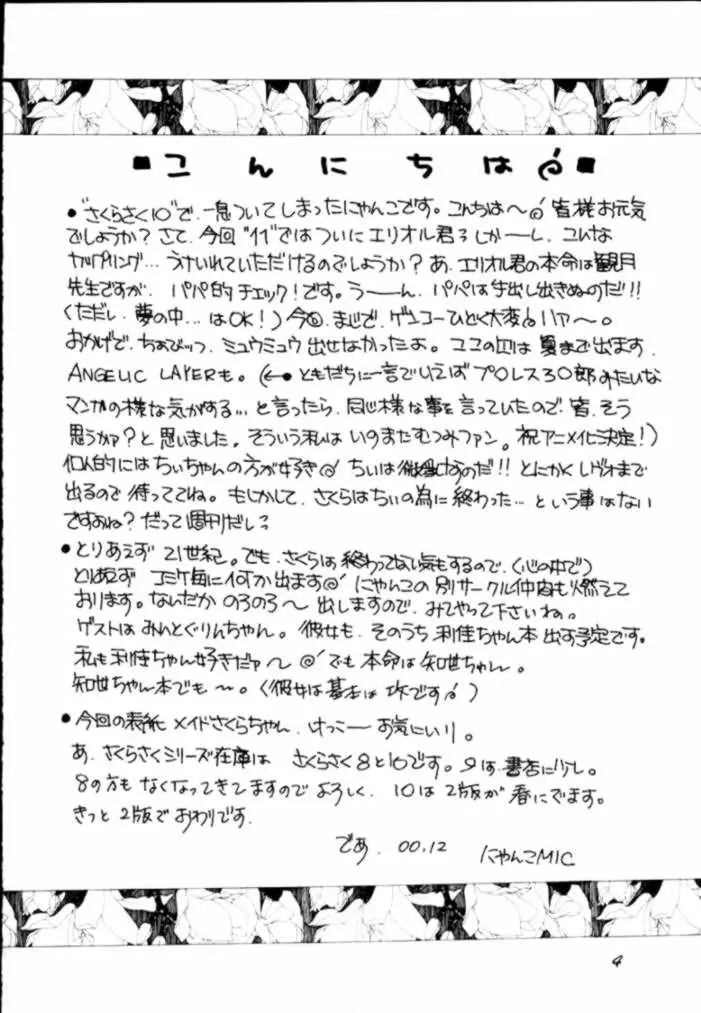 ■こんにちは■
●"さくらさく10"で、一息ついてしまったにゃんこです。こんちは〜 皆様お元気
でしょうか?さて、今回"11"ではついにエリオル君 しかーし、こんな
カップリング…うけいれていただけるのでしょうか?あ、エリオル君の本命は観月
先生ですが、パパ的チェック!です。うーーん、パパは手出し出きぬのだ!!
(ただし、夢の中…はOK!)今回、まじで、ゲンコーひどく大変 ハァ〜。
おかげで、ちょびっツ、ミュウミュウ出せなかったよ。ココの は夏まで出ます、
ANGELIC LAYERも。(←●ともだちに一言でいえばプロレス3○郎みたいな
マンガの様な気がする…と言ったら、同じ様な事を言っていたので、皆、そう
思うかァ?と思いました。そういう私はいのまたむつみファン。祝アニメ化決定!)
個人的にはちぃちゃんの方が好き ちぃは なのだ!!とにかく まで
出るので待っててね。もしかして、さくらはちぃの為に終わった…という事はない
ですよね?だって週刊だし?
●とりあえず 21世紀。でも、さくらは終わってない気もするので、(心の中で)
とりあえず コミケ毎に何か出ます にゃんこの別サークル仲間も燃えて
おります。なんだか のろのろ〜 出しますので、みてやって下さいね。
ゲストはみんとぐりんちゃん。彼女も、そのうち利佳ちゃん本出す予定です。
私も利佳ちゃん好きだァ〜 でも本命は知世ちゃん。
知世ちゃん本でも〜。(彼女は基本は攻です)
●今回の表紙 メイドさくらちゃん、けっこーお気にいり。
あ、さくらさくシリーズ在庫は さくらさく8と10です。9は書店に少し。
8の方もなくなってきてますのでよろしく、10は2版が春にでます。
きっと2版でおわりです.
であ. 00.12 にゃんこMIC
4